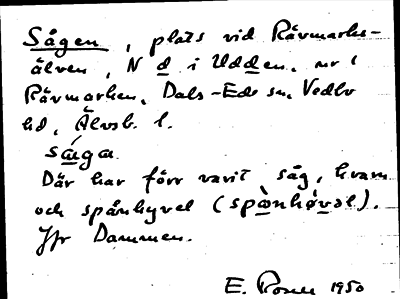 Sågen, plats vid Rävmarks-
älven, N d i Udden, nr 1
Rävmarken, Dals-Eds sn, Vedbo
hd, Älvsb. l.
såga
Där har förr varit såg, kvarn
och spånhyvel (spånhøvəl).
Jfr Dammen.
E. 1950